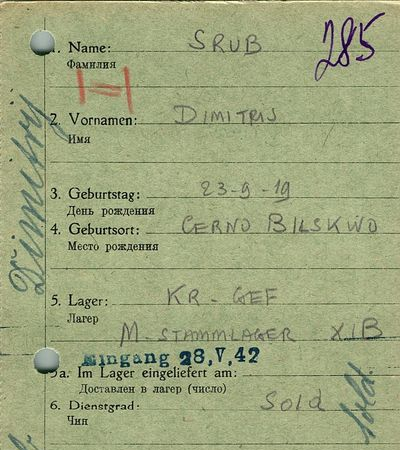 285
1. Name: SRUB
Фамилия
2. Vornamen: DIMITRIJ
Имя
Dimitrij
3. Geburtstag: 23-9-19
День рождения
4. Geburtsort: CERNO BILSKWO
Место рождения
5. Lager: KR-GEF
Лагер
M-STAMMLAGER XIB
Eingang 28.V.42
5a. Im Lager eingeliefert am:
Доставлен в лагер (число)
6. Dienstgrad: Sold
Чин